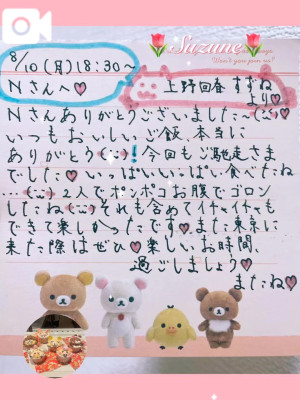 Suzune
8/10(月)18:30〜
Nさんへ♡
上野回春 すずね
より♡
Nさんありがとうございました〜
いつもおいしいご飯、本当に
ありがとう！今回もご馳走さま
でした♡いっぱいいっぱい食べたね
…2人でポンポコお腹でゴロン
したね それも含めてイチャイチャも
できて楽しかったです♥また東京に
来た際はぜひ♥楽しいお時間、
過ごしましょう♥
またね♡